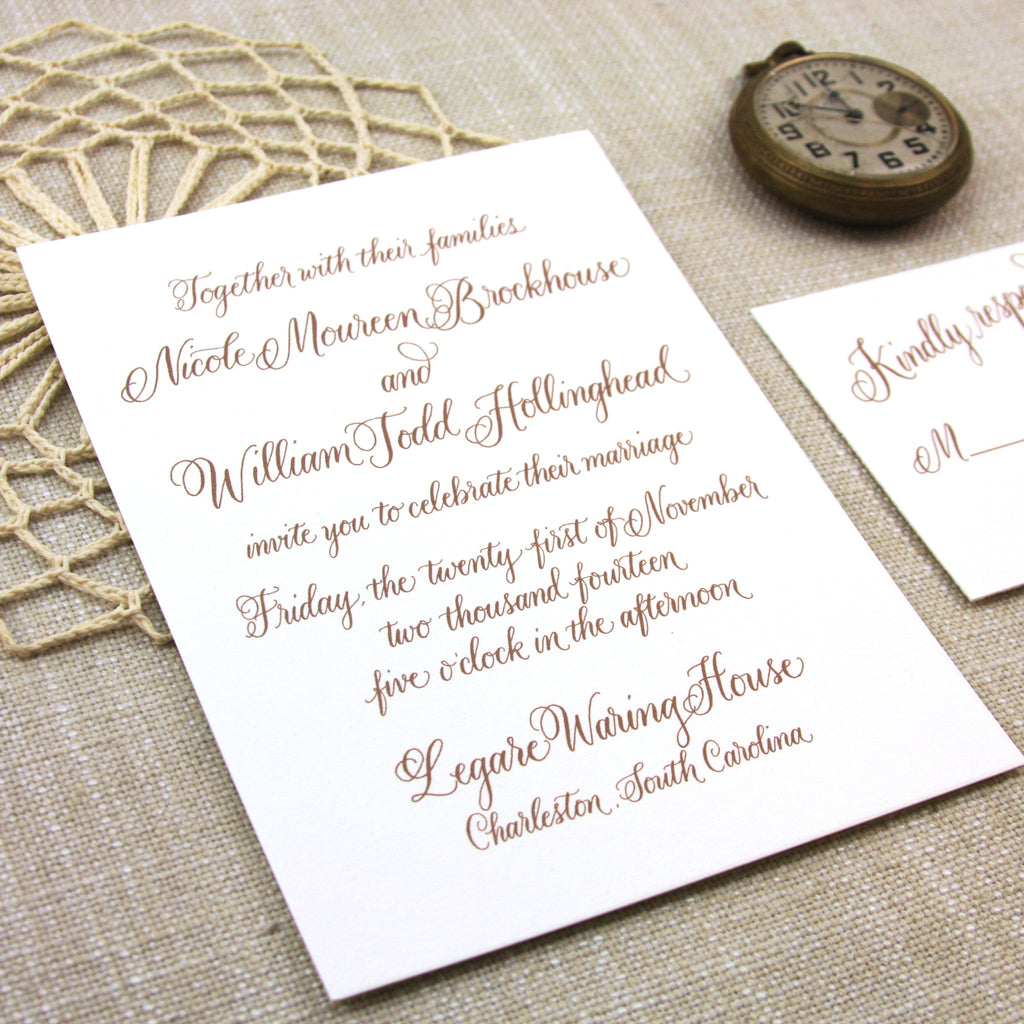 Together with their families
Nicole Moureen Brockhouse
and
William Todd Hollinghead
invite you to celebrate their marriage
Friday, the twenty first of November
two thousand fourteen
five o'clock in the afternoon
Legare Waring House
Charleston, South Carolina
Kindly
M
12
1
2
4
5
6
7
8
9